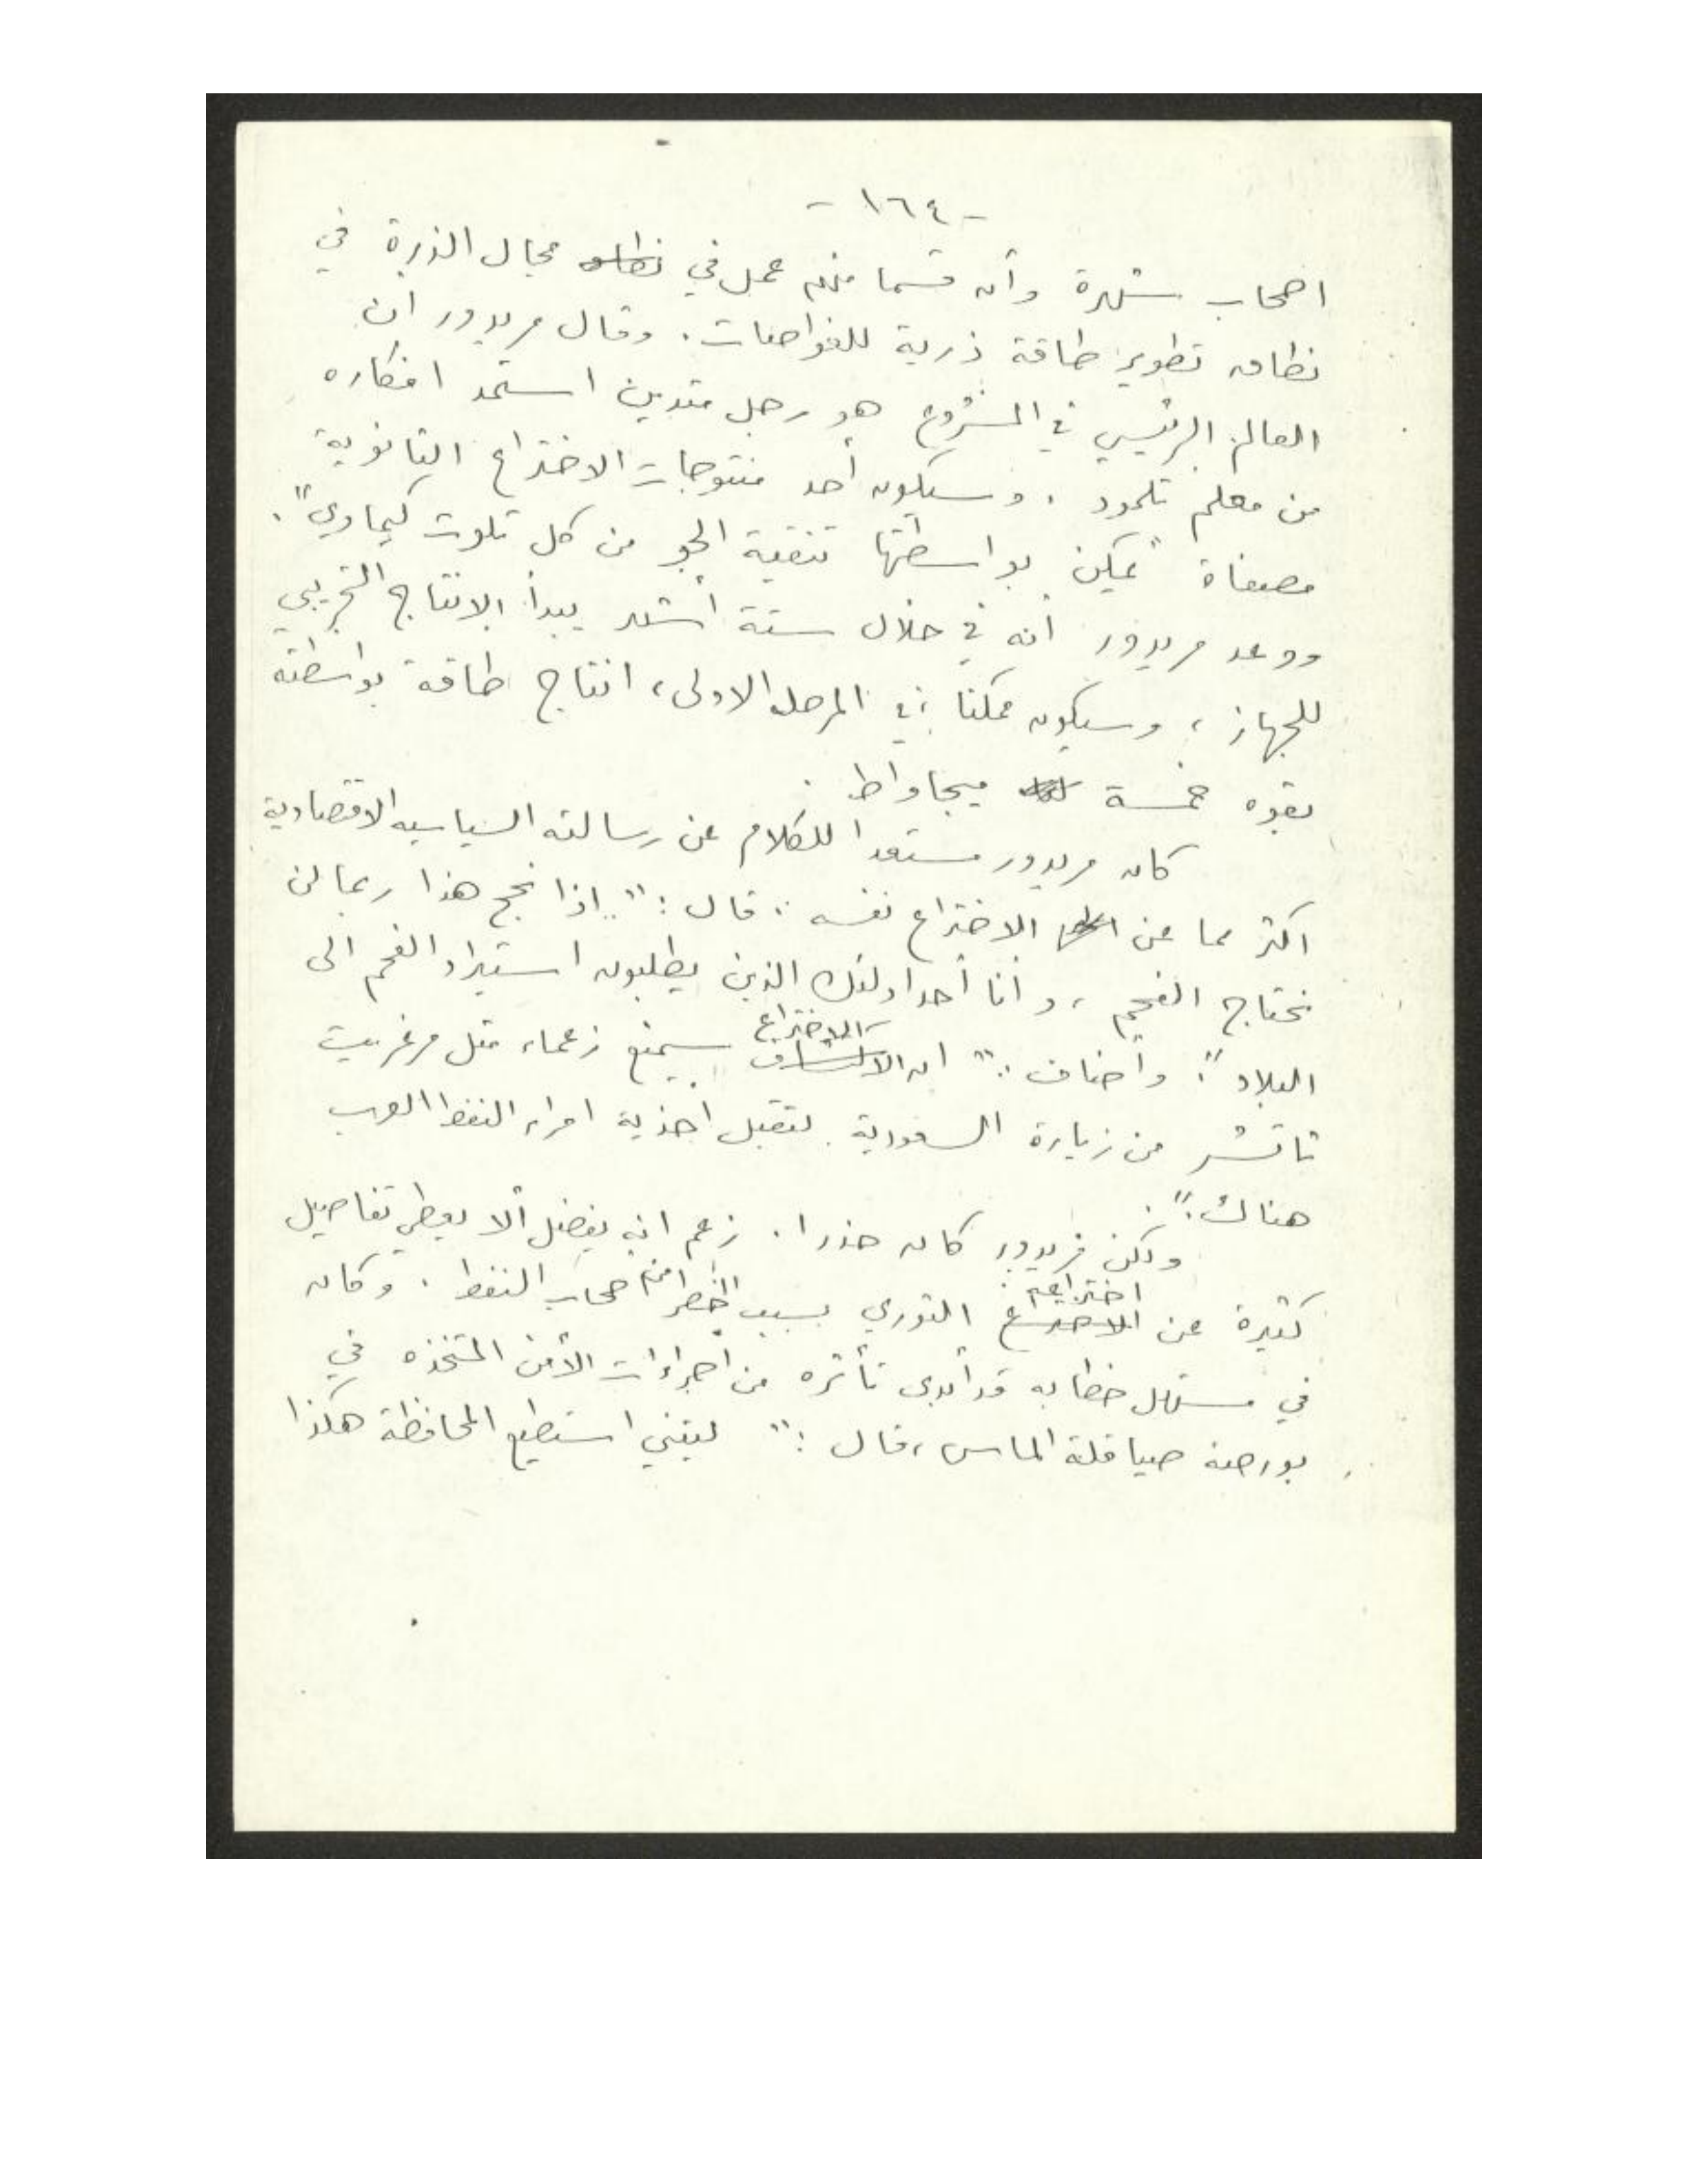 - ١٦٤ -
اصحاب شهرة وأن قسما منهم عمل في نطاق مجال الذرة في
نطاق تطوير طاقة ذرية للغواصات. وقال مريدور ان
العالم الرئيسي في المشروع هو رجل متدين استمد افكاره
من معلم تلمود. وسيكون أحد منتوجات الاختراع الثانوية
مصفاة "يمكن بواسطتها تنقية الجو من كل تلوث كيماوي".
ووعد مريدور أنه في خلال ستة أشهر يبدأ الانتاج التجريبي
للجهاز، وسيكون ممكنا، في المرحلة الاولى، انتاج طاقة بواسطته
بقوه خمسة ميجاواط.
كان مريدور مستعدا للكلام عن رسالته السياسيه الاقتصادية
اكثر مما عن الاختراع نفسه. قال: "اذا نجح هذا ربما لن
نحتاج الفحم، وأنا أحد اولئك الذين يطلبون استيراد الفحم الى
البلاد". وأضاف: "ان الاكتشاف الاختراع سيمنع زعماء مثل مرغريت
تاتشر من زيارة السعودية لتقبل أحذية امراء النفط العرب
هناك".
ولكن مريدور كان حذرا. زعم انه يفضل ألا يعطي تفاصيل
كثيرة عن الاختراع اختراعه الثوري بسبب الخطر من اصحاب النفط. وكان
في مستهل خطابه قد أبدى تأثره من اجراءات الأمن المتخذه في
بورصة صياقلة الماس، قال: "ليتني استطيع المحافظة هكذا